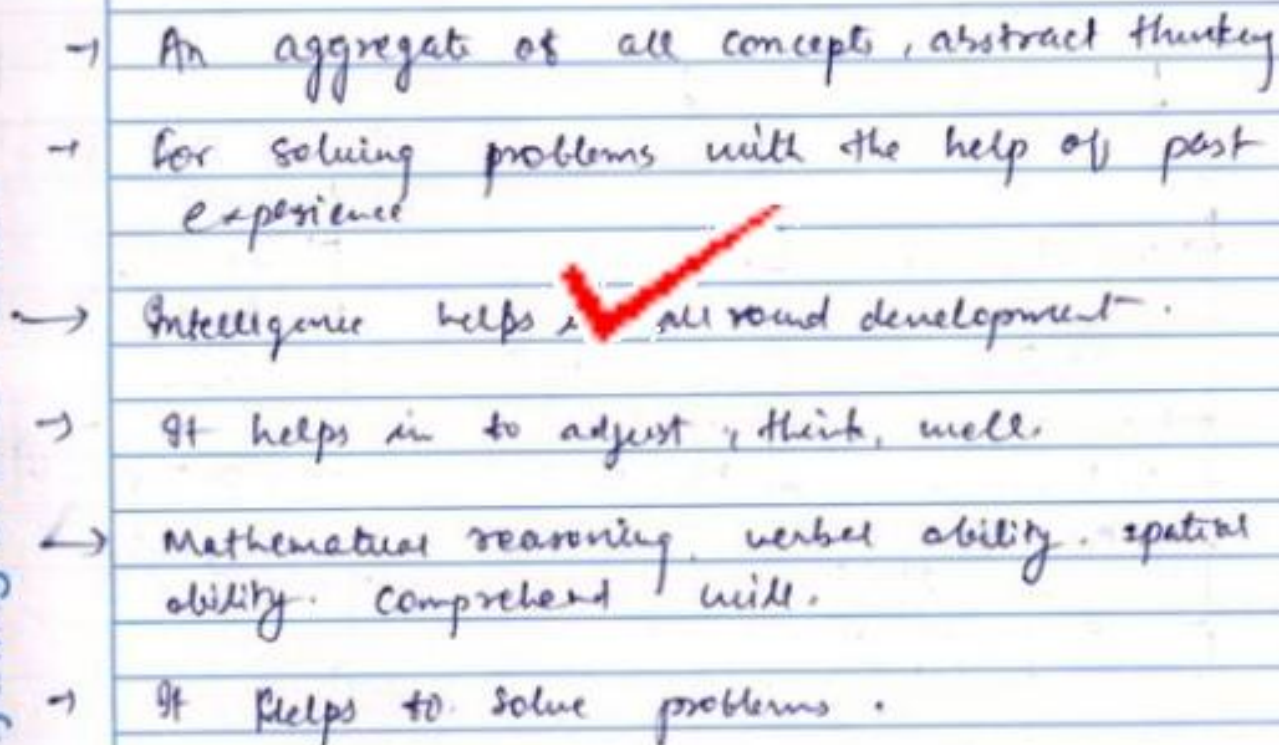 → An aggregate of all concepts, abstract thinking
→ for solving problems with the help of past
experience
→ Intelligence helps all round development.
→ It helps in to adjust, think, well.
→ Mathematical reasoning, verbal ability. spatial
ability. Comprehend will.
→ It helps to solve problems.